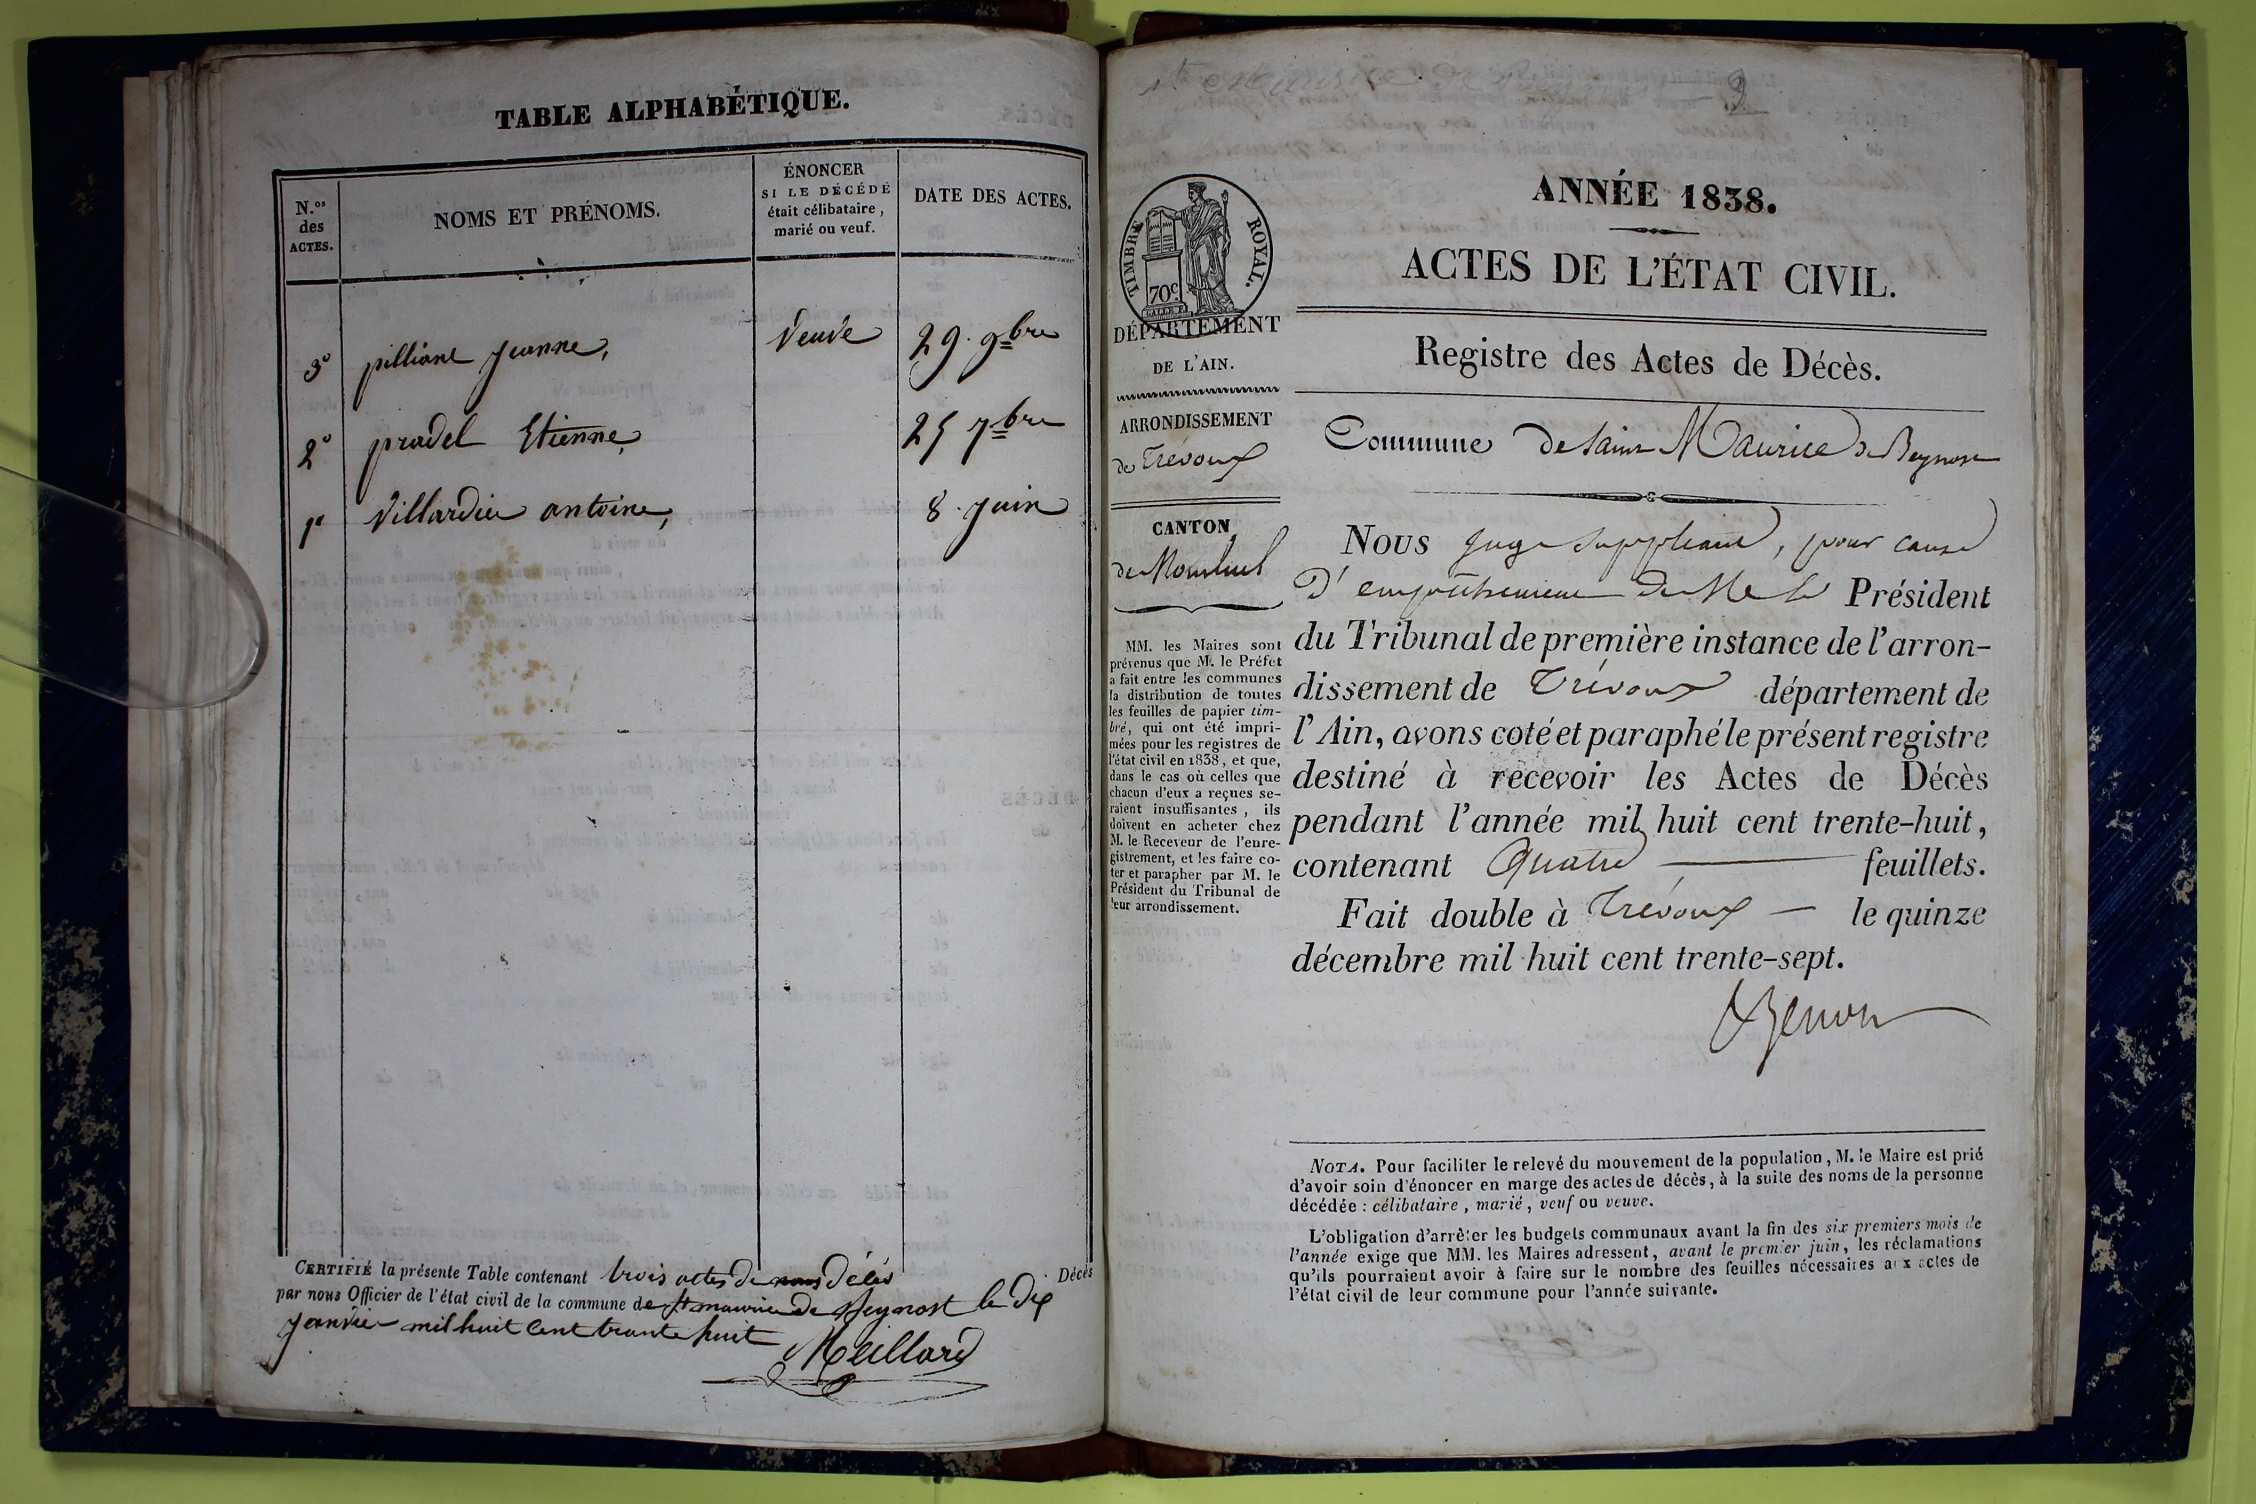 TABLE ALPHABÉTIQUE.
N.os des ACTES.
NOMS ET PRÉNOMS.
ÉNONCER
SI LE DÉCÉDÉ
était célibataire,
marié ou veuf.
DATE DES ACTES.
3º pilliane Jeanne, Veuve 29. 9bre
2º pradel Etienne, 25 7bre
1º Villardier antoine, 8. Juin
CERTIFIÉ la présente Table contenant trois actes de Décès Décès
par nous Officier de l'état civil de la commune de St maurice de Beynost le dix
Janvier mil huit Cent trente huit
Meillard
ANNÉE 1838.
ACTES DE L'ÉTAT CIVIL.
TIMBRE ROYAL.
70c
DÉPARTEMENT
DE L'AIN.
ARRONDISSEMENT
de Trévoux
CANTON
de Montluel
MM. les Maires sont
prévenus que M. le Préfet
a fait entre les communes
la distribution de toutes
les feuilles de papier tim-
bré, qui ont été impri-
mées pour les registres de
l'état civil en 1838, et que,
dans le cas où celles que
chacun d'eux a reçues se-
raient insuffisantes, ils
doivent en acheter chez
M. le Receveur de l'enre-
gistrement, et les faire co-
ter et parapher par M. le
Président du Tribunal de
leur arrondissement.
Registre des Actes de Décès.
Commune de Saint Maurice de Beynost
Nous juge suppléant, pour cause
D'empêchement de Mr le Président
du Tribunal de première instance de l'arron-
dissement de Trévoux département de
l'Ain, avons coté et paraphé le présent registre
destiné à recevoir les Actes de Décès
pendant l'année mil huit cent trente-huit,
contenant Quatre feuillets.
Fait double à Trévoux — le quinze
décembre mil huit cent trente-sept.
NOTA. Pour faciliter le relevé du mouvement de la population, M. le Maire est prié
d'avoir soin d'énoncer en marge des actes de décès, à la suite des noms de la personne
décédée : célibataire, marié, veuf ou veuve.
L'obligation d'arrêter les budgets communaux avant la fin des six premiers mois de
l'année exige que MM. les Maires adressent, avant le premier juin, les réclamations
qu'ils pourraient avoir à faire sur le nombre des feuilles nécessaires aux actes de
l'état civil de leur commune pour l'année suivante.